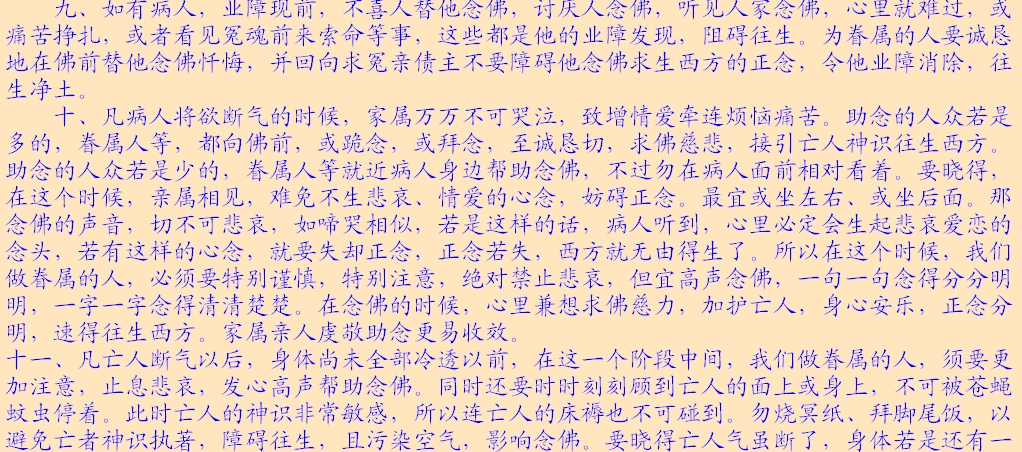 九、如有病人，业障现前，不喜人替他念佛，讨厌人念佛，听见人家念佛，心里就难过，或
痛苦挣扎，或者看见冤魂前来索命等事，这些都是他的业障发现，阻碍往生。为眷属的人要诚恳
地在佛前替他念佛忏悔，并回向求冤亲债主不要障碍他念佛求生西方的正念，令他业障消除，往
生净土。
十、凡病人将欲断气的时候，家属万万不可哭泣，致增情爱牵连烦恼痛苦。助念的人众若是
多的，眷属人等，都向佛前，或跪念，或拜念，至诚恳切，求佛慈悲，接引亡人神识往生西方。
助念的人众若是少的，眷属人等就近病人身边帮助念佛，不过勿在病人面前相对看着。要晓得，
在这个时候，亲属相见，难免不生悲哀、情爱的心念，妨碍正念。最宜或坐左右、或坐后面。那
念佛的声音，切不可悲哀，如啼哭相似，若是这样的话，病人听到，心里必定会生起悲哀爱恋的
念头，若有这样的心念，就要失却正念，正念若失，西方就无由得生了。所以在这个时候，我们
做眷属的人，必须要特别谨慎，特别注意，绝对禁止悲哀，但宜高声念佛，一句一句念得分分明
明，一字一字念得清清楚楚。在念佛的时候，心里兼想求佛慈力，加护亡人，身心安乐，正念分
明，速得往生西方。家属亲人虔敬助念更易收效。
十一、凡亡人断气以后，身体尚未全部冷透以前，在这一个阶段中间，我们做眷属的人，须要更
加注意，止息悲哀，发心高声帮助念佛。同时还要时时刻刻顾到亡人的面上或身上，不可被苍蝇
蚊虫停着。此时亡人的神识非常敏感，所以连亡人的床褥也不可碰到。勿烧冥纸、拜脚尾饭，以
避免亡者神识执著，障碍往生，且污染空气，影响念佛。要晓得亡人气虽断了，身体若是还有一